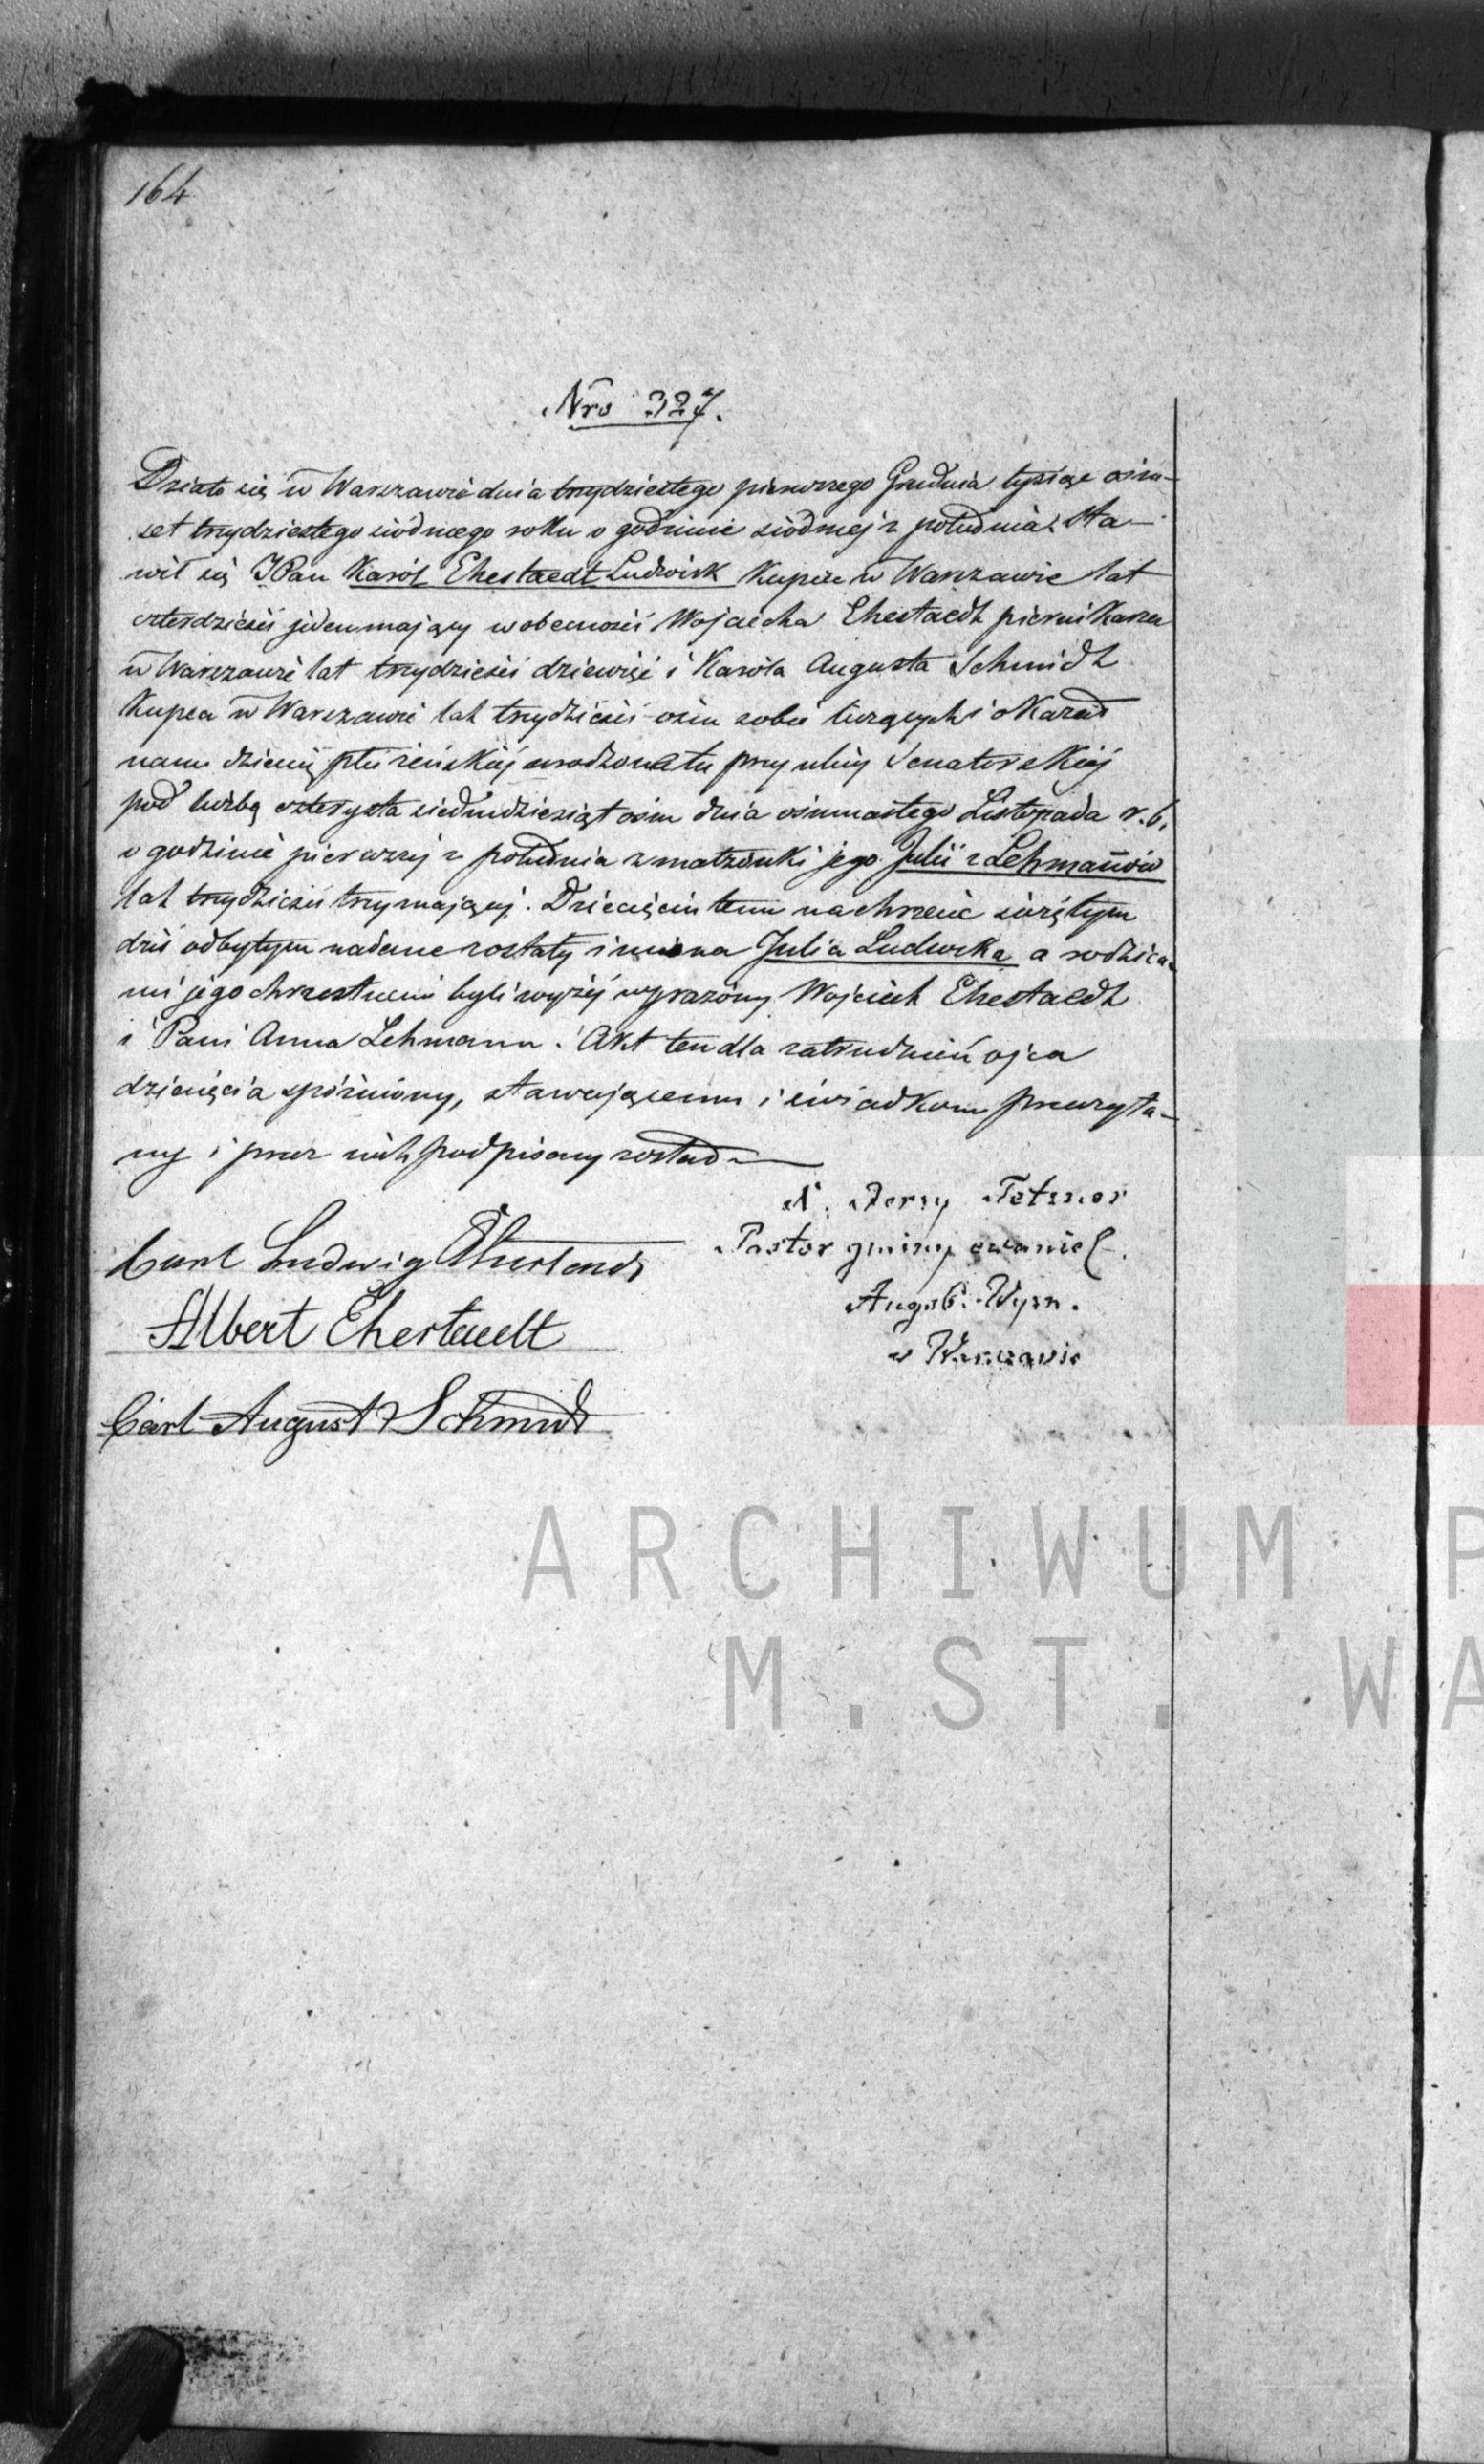 164
Nro 327.
Działo się w Warszawie dnia trzydziestego pierwszego Grudnia tysiąc ośm-
set trzydziestego siódmego roku o godzinie siódmej z południa. Sta-
wił się JPan Karól Ehestaedt Ludwick Kupiec w Warszawie lat
czterdzieści jeden mający w obecności Wojciecha Ehestaedt piernikarza
w Warszawie lat trzydzieści dziewięć i Karóla Augusta Schmidt
Kupca w Warszawie lat trzydzieści ośm sobie liczących i okazał
nam dziecię płci żeńskiej urodzone tu przy ulicy Senatorskiej
pod liczbą czterysta siedmdziesiąt ośm dnia ośmnastego Listopada r. b.
o godzinie pierwszej z południa z małżonki jego Julii z Lehmañów
lat trzydzieści trzy mającej. Dziecięciu temu na chrzcie świętym
dziś odbytym nadane zostały imiona Julia Ludwika a rodzica-
mi jego chrzestnemi byli wyżej wyrażony Wojciech Ehestaedt
i Pani Anna Lehmann. Akt ten dla zatrudnień ojca
dziecięcia spóźniony, stawającemu i świadkom przeczyta-
ny i przez nich podpisany został
X. Jerzy Tetzner
Pastor gminy ewaniel.
Augsb. Wyzn.
w Warszawie
Carl Ludwig Ehestaedt
Albert Ehestaedt
Carl August Schmidt
ARCHIWUM P
M.ST. WA